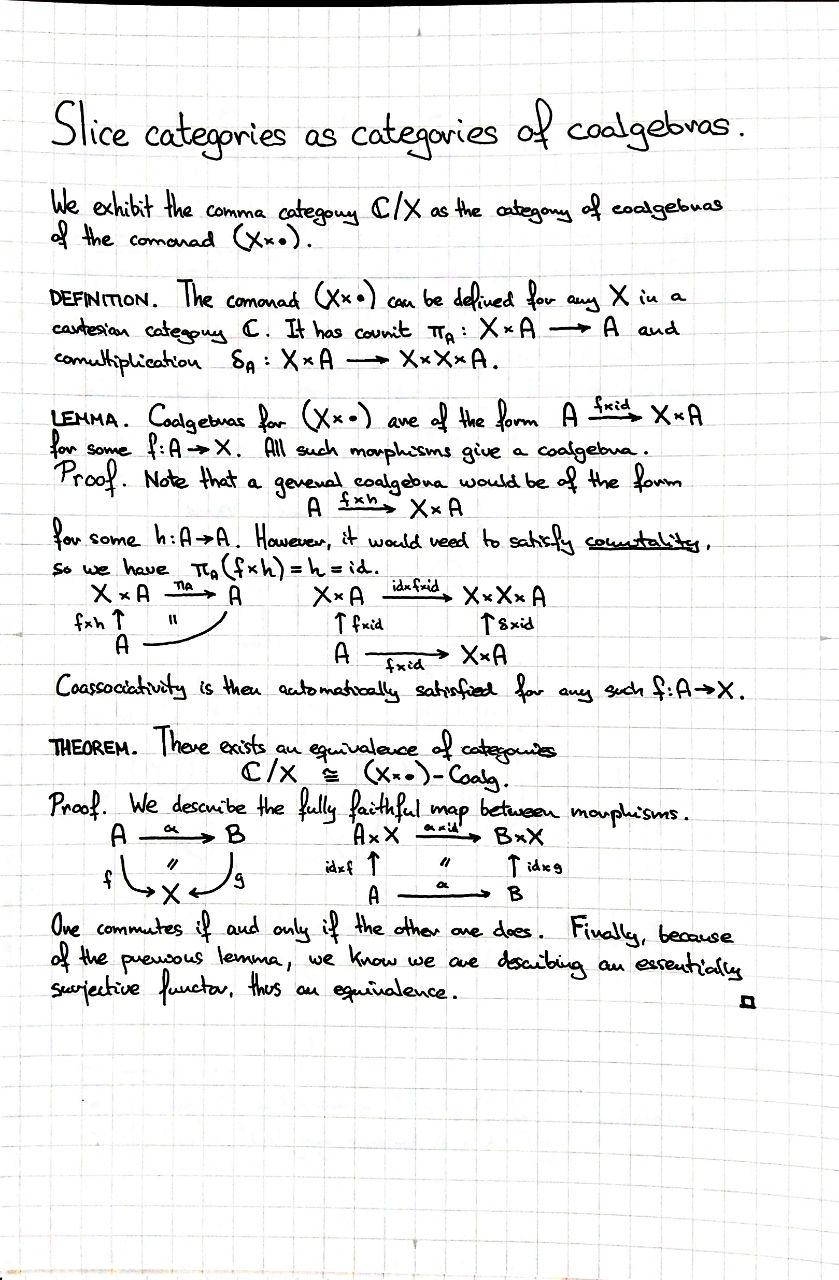 Slice categories as categories of coalgebras.
We exhibit the comma category ℂ/X as the category of coalgebras
of the comonad (X×•).
DEFINITION. The comonad (X×•) can be defined for any X in a
cartesian category ℂ. It has counit π_A : X×A ⟶ A and
comultiplication δ_A : X×A ⟶ X×X×A.
LEMMA. Coalgebras for (X×•) are of the form A —f×id→ X×A
for some f:A→X. All such morphisms give a coalgebra.
Proof. Note that a general coalgebra would be of the form
A —f×h→ X×A
for some h:A→A. However, it would need to satisfy counitality,
so we have π_A(f×h)=h=id.
X×A —π_A→ A X×A —id×f×id→ X×X×A
f×h ↑ = ↑ f×id ↑ δ×id
A A —f×id→ X×A
Coassociativity is then automatically satisfied for any such f:A→X.
THEOREM. There exists an equivalence of categories
ℂ/X ≅ (X×•)-Coalg.
Proof. We describe the fully faithful map between morphisms.
A —α→ B A×X —α×id→ B×X
f = g id×f ↑ = ↑ id×g
X A —α→ B
One commutes if and only if the other one does. Finally, because
of the previous lemma, we know we are describing an essentially
surjective functor, thus an equivalence.
□